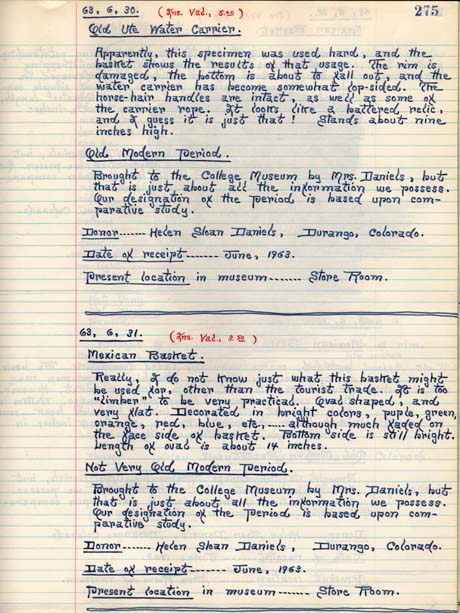 63. 6. 30. (Ins. Val., 5.00) 275
Old Ute Water Carrier.
Apparently, this specimen was used hard, and the
basket shows the results of that usage. The rim is
damaged, the bottom is about to fall out, and the
water carrier has become somewhat lop-sided. The
horse-hair handles are intact, as well as some of
the carrier rope. It looks like a battered, relic,
and I guess it is just that! Stands about nine
inches high.
Old Modern Period.
Brought to the College Museum by Mrs. Daniels, but
that is just about all the information we possess.
Our designation of the period is based upon com-
parative study.
Donor------ Helen Sloan Daniels, Durango, Colorado.
Date of receipt------- June, 1963.
Present location in museum------- Store Room.
63. 6. 31. (Ins. Val., 3.00)
Mexican Basket.
Really, I do not know just what this basket might
be used for, other than the tourist trade. It is too
"limber" to be very practical. Oval shaped, and
very flat. Decorated in bright colors, puple, green,
orange, red, blue, etc.,---- although much faded on
the face side of basket. Bottom side is still bright.
Length of oval is about 14 inches.
Not Very Old Modern Period.
Brought to the College Museum by Mrs. Daniels, but
that is just about all the information we possess.
Our designation of the period is based upon com-
parative study.
Donor------ Helen Sloan Daniels, Durango, Colorado.
Date of receipt------- June, 1963.
Present location in museum------- Store Room.